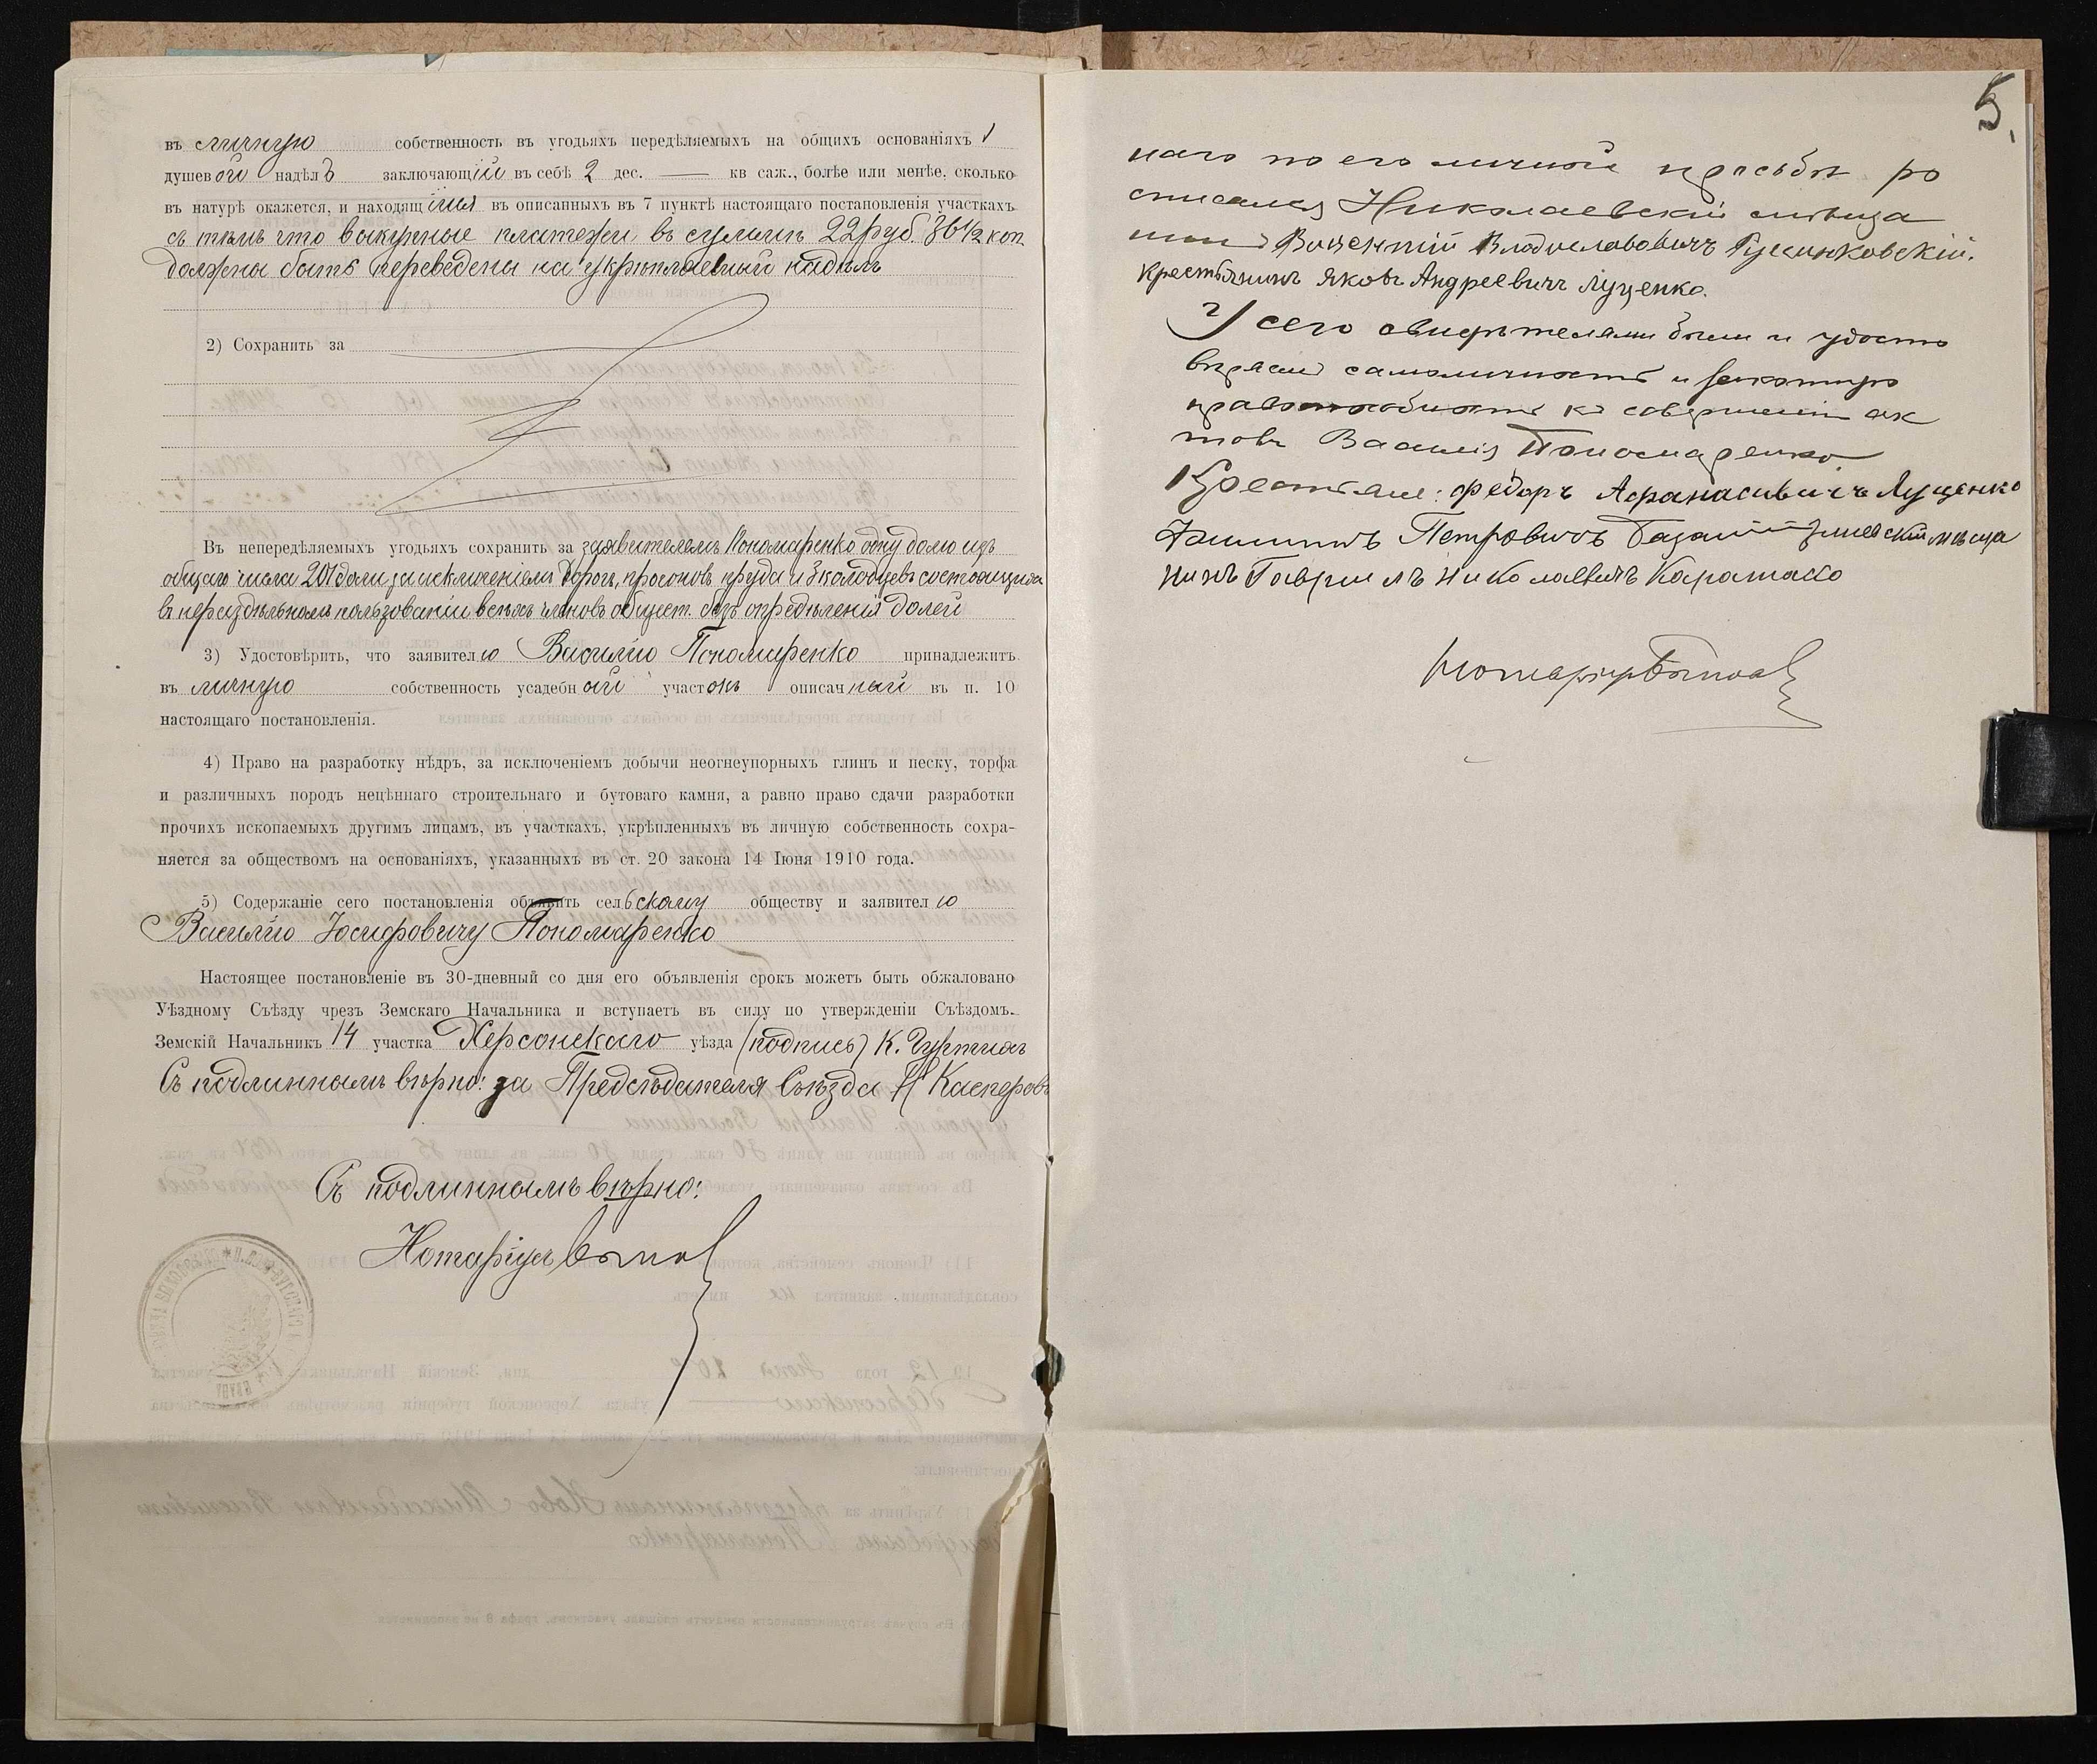 въ личную собственность въ угодьяхъ передѣляемыхъ на общихъ основаніяхъ 1
душевого надѣлъ заключающій въ себѣ 2 дес. — кв саж., болѣе или менѣе, сколько
въ натурѣ окажется, и находящійся въ описанныхъ въ 7 пунктѣ настоящаго постановленія участкахъ
съ тѣмъ что выкупные платежи въ суммѣ 22 руб. 86½ коп
должны быть переведены на укрѣпляемый надѣлъ
2) Сохранить за
Въ непередѣляемыхъ угодьяхъ сохранить за заявителемъ Пономаренко одну долю изъ
общаго числа 201 доли за исключеніемъ дорогъ, прогоновъ пруда и 3 колодцевъ состоящихъ
въ нераздѣльномъ пользованіи всѣхъ членовъ общест. безъ опредѣленія долей
3) Удостовѣрить, что заявителю Василію Пономаренко принадлежитъ
въ личную собственность усадебный участокъ описанный въ п. 10
настоящаго постановленія.
4) Право на разработку нѣдръ, за исключеніемъ добычи неогнеупорныхъ глинъ и песку, торфа
и различныхъ породъ нецѣннаго строительнаго и бутоваго камня, а равно право сдачи разработки
прочихъ ископаемыхъ другимъ лицамъ, въ участкахъ, укрѣпленныхъ въ личную собственность сохра-
няется за обществомъ на основаніяхъ, указанныхъ въ ст. 20 закона 14 Іюня 1910 года.
5) Содержаніе сего постановленія объявить сельскому обществу и заявителю
Василію Іосифовичу Пономаренко
Настоящее постановленіе въ 30-дневный со дня его объявленія срокъ можетъ быть обжаловано
Уѣздному Съѣзду чрезъ Земскаго Начальника и вступаетъ въ силу по утвержденіи Съѣздомъ.
Земскій Начальникъ 14 участка Херсонскаго уѣзда (подпись) К.
Съ подлиннымъ вѣрно: за Предсѣдателя Съѣзда Н Касперовъ
Съ подлиннымъ вѣрно:
Нотаріусъ
5.
наго по его личной просьбѣ ро
списался Николаевскій мѣща
нинъ Викентій Владиславовичъ
крестьянинъ Яковъ Андреевичъ Луценко.
У сего свидѣтелями были и удосто
вѣряемъ самоличность и законную
правоспособность къ совершенію ак
товъ Василія Пономаренко
Крестьяне: Федоръ Афанасьевичъ Луценко
Филиппъ Петровичъ мѣща
нинъ Гавриилъ Николаевичъ
Нотаріусъ